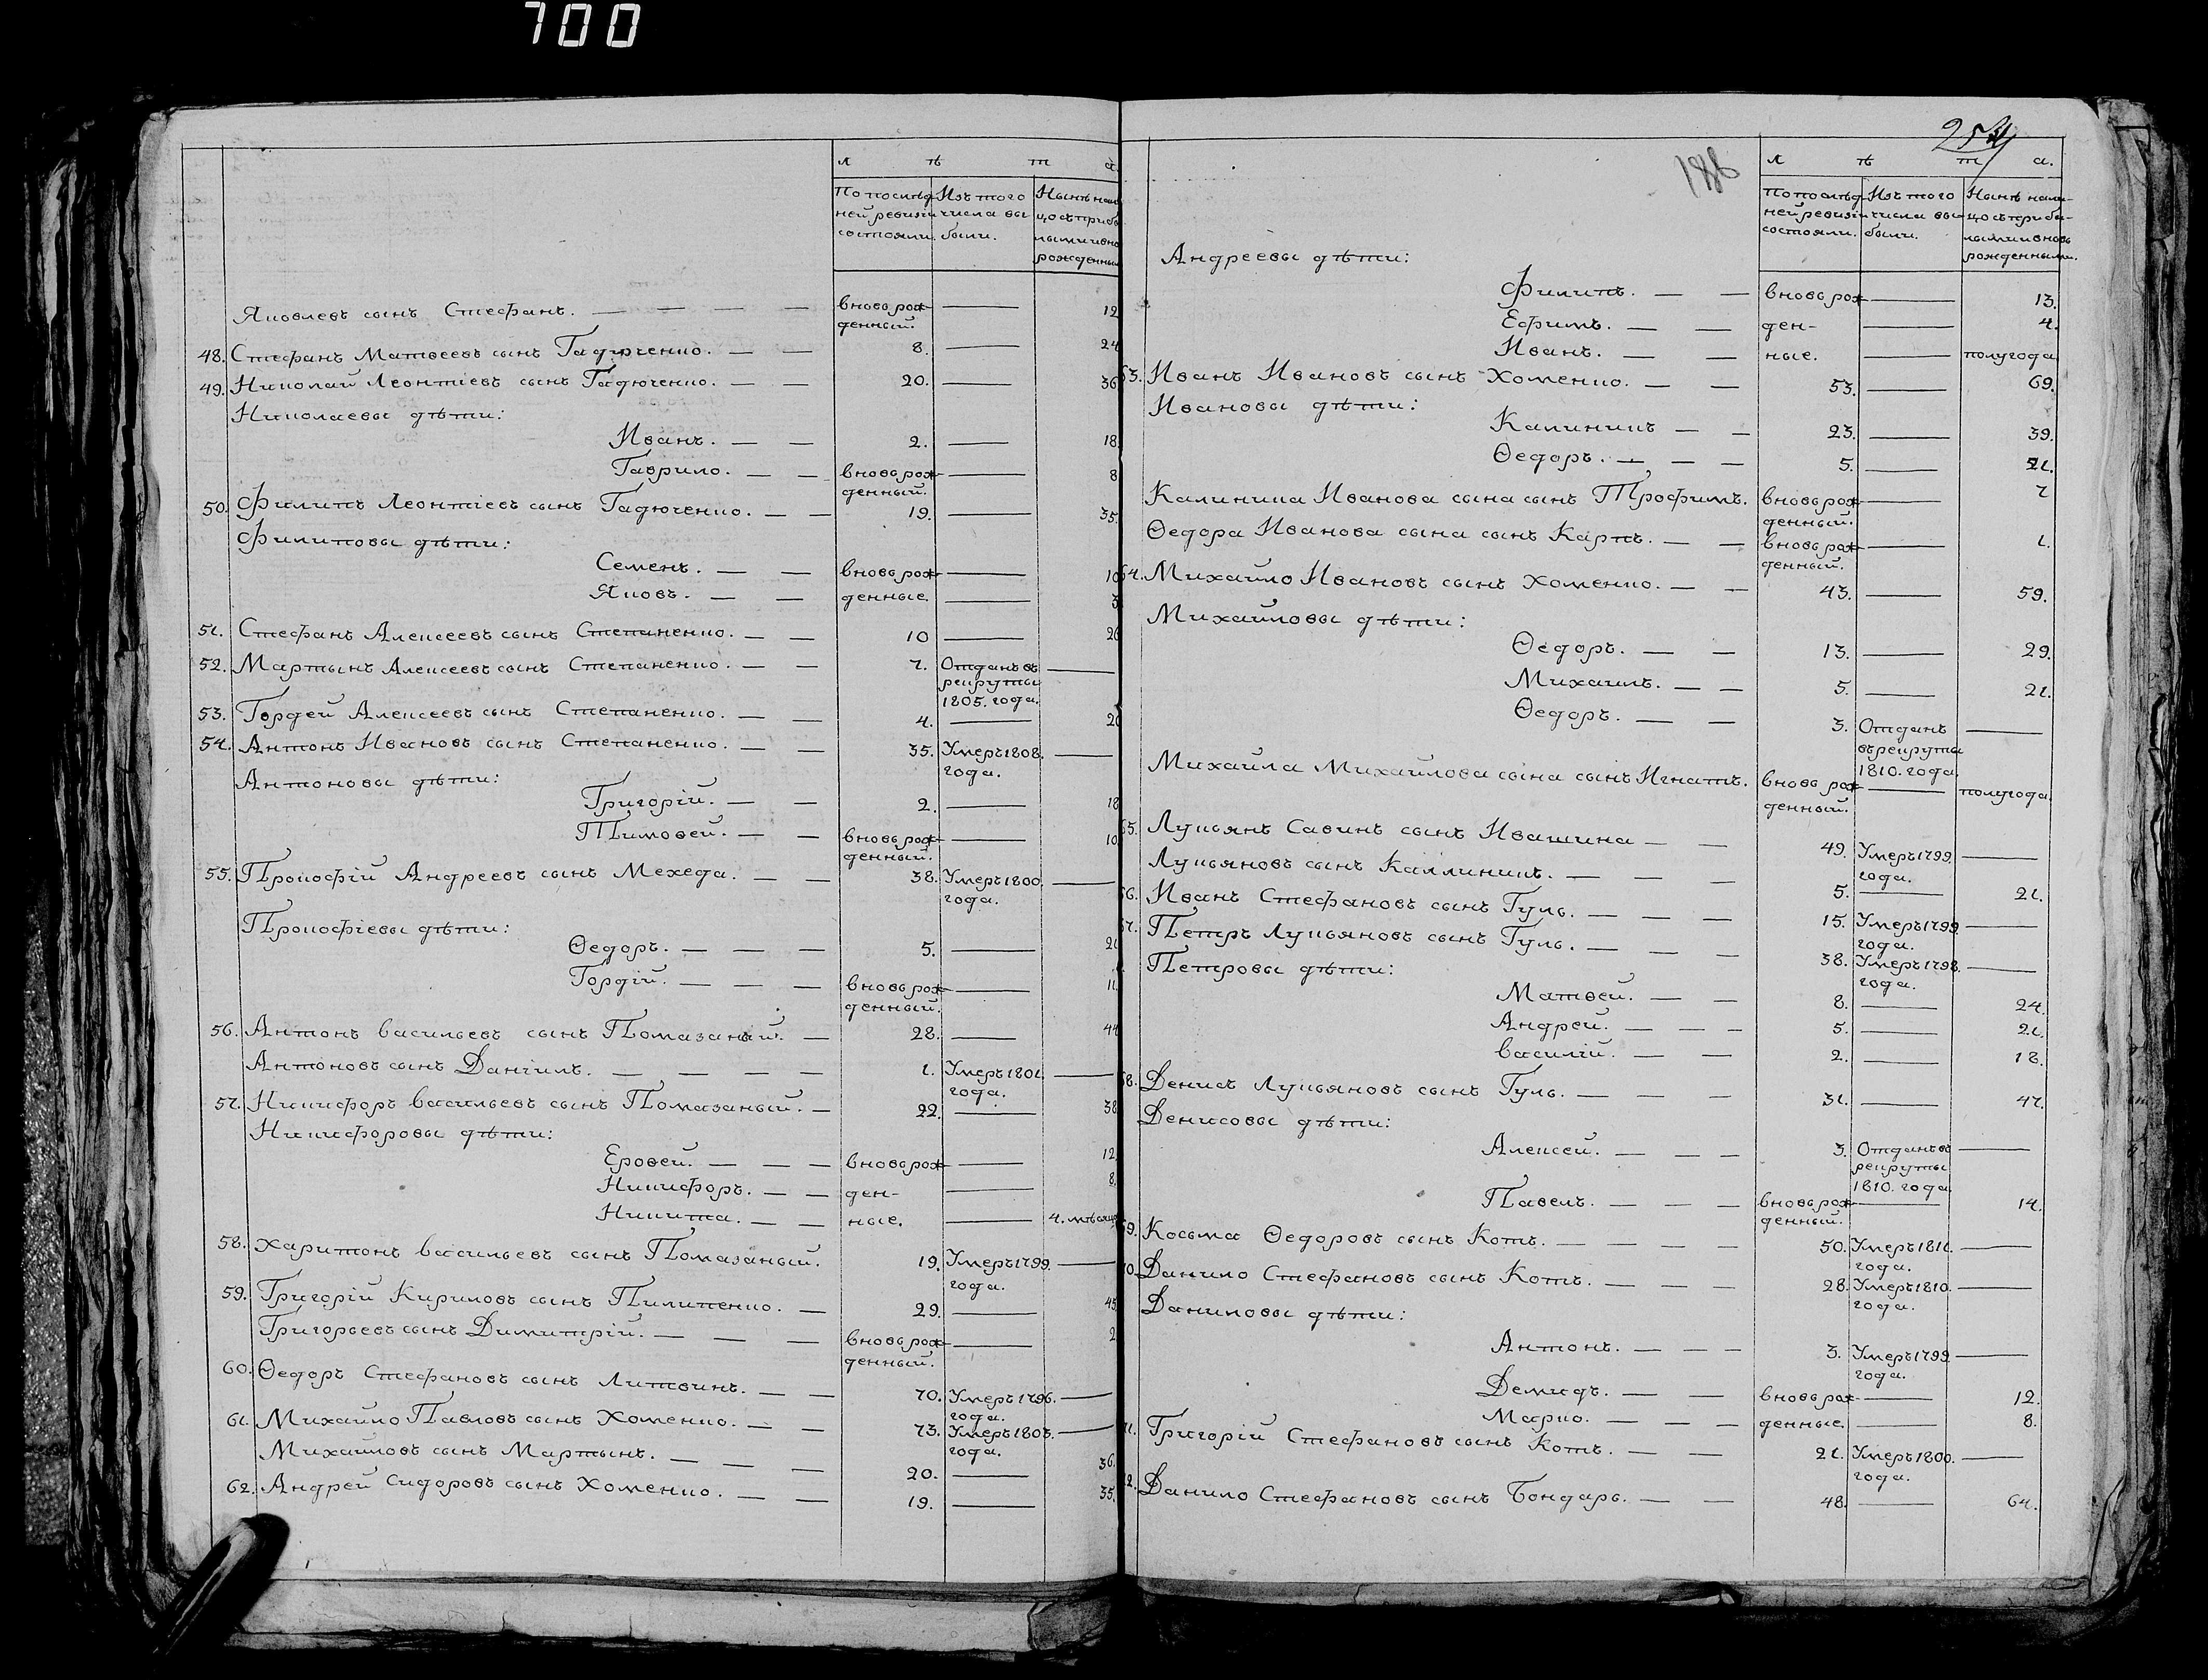 700
л ѣ т а.
По послѣд- Изъ того Нынѣ нали-
ней ревизіи числа вы- цо съ прибы-
состояли. были. лыми и вно
рожденны
Яковлевъ сынъ Стефанъ. — — — — вновь рож- — 12
денный.
48. Стефанъ Матвеевъ сынъ Гадюченко. — — 8. — 24
49. Николай Леонтіевъ сынъ Гадюченко. — — 20. — 36
Николаевы дѣти:
Иванъ. — — 2. — 18.
Гаврило. — — вновь рож- — 8
денный.
50. Филипъ Леонтіевъ сынъ Гадюченко. — — 19. — 35.
Филиповы дѣти:
Семенъ. — — вновь рож- — 10
Яковъ. — — денные. — 3
51. Стефанъ Алексеевъ сынъ Степаненко. — — 10 — 26
52. Мартынъ Алексеевъ сынъ Степаненко. — — 7. Отданъ въ —
рекруты
1805. года.
53. Гордей Алексеевъ сынъ Степаненко. — — 4. — 20
54. Антонъ Ивановъ сынъ Степаненко. — — 35. Умеръ 1808. —
года.
Антоновы дѣти:
Григорій. — — 2. — 18
Тимофей. — — вновь рож- — 10
денный.
55. Прокофій Андреевъ сынъ Мехеда. — — 38. Умеръ 1800. —
года.
Прокофіевы дѣти:
Ѳедоръ. — — — 5. — 21
Гордій. — — — вновь рож- — 11.
денный.
56. Антонъ Васильевъ сынъ Помазаный. — 28. — 44
Антоновъ сынъ Даніилъ. — — — — 1. Умеръ 1801. —
года.
57. Никифоръ Васильевъ сынъ Помазаный. — 22. — 38
Никифоровы дѣти:
Ерофей. — — — вновь рож- — 12.
Никифоръ. — — ден- — 8.
Никита. — — ные. — 4. мѣсяц
58. Харитонъ Васильевъ сынъ Помазаный. 19. Умеръ 1799. —
года.
59. Григорій Кириловъ сынъ Пилипенко. — 29. — 45
Григорьевъ сынъ Димитрій. — — — вновь рож- — 2
денный.
60. Ѳедоръ Стефановъ сынъ Литвинъ. — — 70. Умеръ 1796. —
года.
61. Михайло Павловъ сынъ Хоменко. — — 73. Умеръ 1803. —
года.
Михайловъ сынъ Мартынъ. — — — 20. — 36.
62. Андрей Сидоровъ сынъ Хоменко. — — 19. — 35.
254
186
л ѣ т а.
По послѣд- Изъ того Нынѣ нали-
ней ревизіи числа вы- цо съ прибы-
состояли. были. лыми и вновь
рожденными.
Андреевы дѣти:
Филипъ. — — вновь рож- — 13.
Ефимъ. — — ден- — 4.
Иванъ. — — ные. — полугода
63. Иванъ Ивановъ сынъ Хоменко. — — 53. — 69.
Ивановы дѣти:
Калиникъ — — 23. — 39.
Ѳедоръ. — — — 5. — 21.
Калиника Иванова сына сынъ Трофимъ. вновь рож- — 7
денный.
Ѳедора Иванова сына сынъ Карпъ. — — вновь рож- — 1.
денный.
64. Михайло Ивановъ сынъ Хоменко. — — 43. — 59.
Михайловы дѣти:
Ѳедоръ. — — 13. — 29.
Михаилъ. — — 5. — 21.
Ѳедоръ. — — 3. Отданъ —
въ рекруты
1810. года
Михайла Михайлова сына сынъ Игнатъ. вновь рож- — полугода.
денный.
65. Лукьянъ Савинъ сынъ Ивашина — — 49. Умеръ 1799. —
года.
Лукьяновъ сынъ Каллиникъ. — — — 5. — 21.
66. Иванъ Стефановъ сынъ Гуль. — — — 15. Умеръ 1799. —
года.
67. Петръ Лукьяновъ сынъ Гуль. — — — 38. Умеръ 1798. —
года.
Петровы дѣти:
Матвей. — — 8. — 24.
Андрей. — — — 5. — 21.
Василій. — — 2. — 18.
68. Денисъ Лукьяновъ сынъ Гуль. — — — 31. — 47.
Денисовы дѣти:
Алексей. — — — 3. Отданъ въ —
рекруты
1810. года
Павелъ. — — — вновь рож- — 14.
денный.
69. Косьма Ѳедоровъ сынъ Котъ. — — — — 50. Умеръ 1811. —
года.
70. Данило Стефановъ сынъ Котъ. — — — 28. Умеръ 1810. —
года.
Даниловы дѣти:
Антонъ. — — — 3. Умеръ 1799 —
года.
Демидъ. — — — вновь рож- — 12.
Марко. — — — денные. — 8.
71. Григорій Стефановъ сынъ Котъ. — — 21. Умеръ 1800. —
года.
72. Данило Стефановъ сынъ Бондарь. — — 48. — 64.